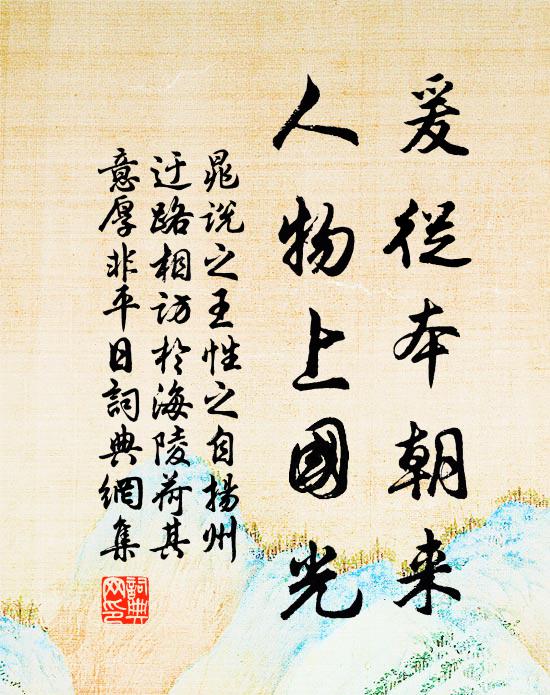 爰從本朝来
人物上國光
晁說之王性之自揚州
迂路相訪於海陵荷其
意厚非平日詞典網集
詞典网印